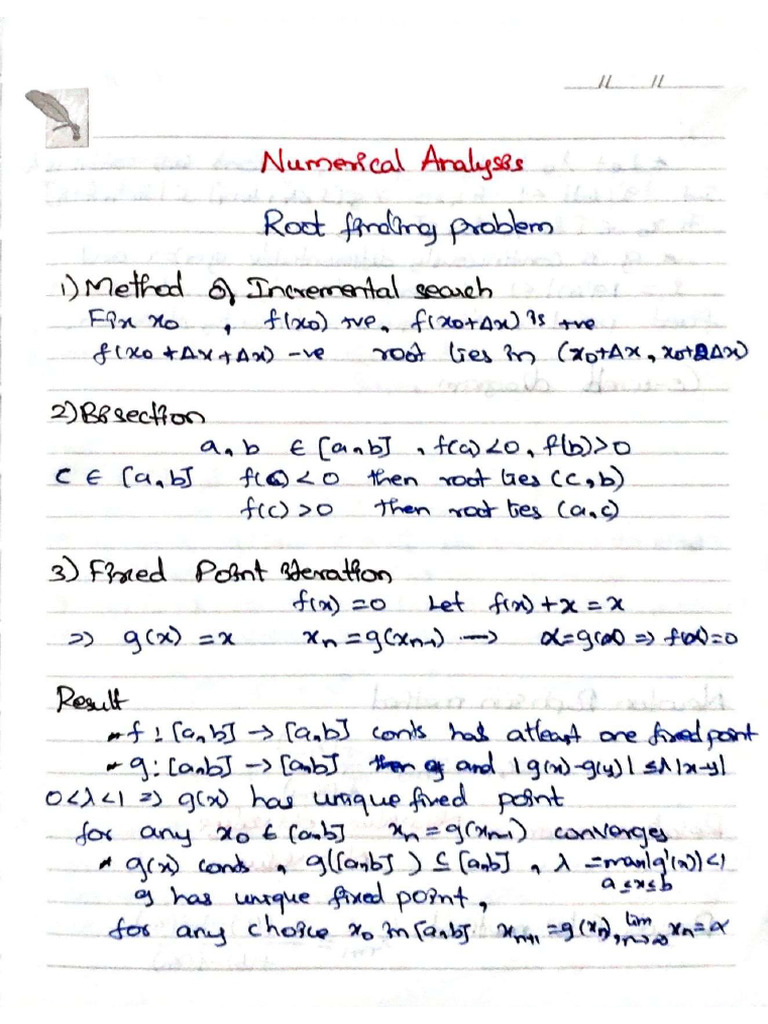 // //
Numerical Analysis
Root finding problem
1) Method of Incremental search
Fix x₀ , f(x₀) +ve, f(x₀+Δx) is +ve
f(x₀+Δx+Δx) -ve root lies in (x₀+Δx, x₀+2Δx)
2) Bisection
a, b ∈ [a,b] , f(a)<0, f(b)>0
c ∈ [a,b] f(c)<0 then root lies (c,b)
f(c)>0 then root lies (a,c)
3) Fixed Point iteration
f(x)=0 Let f(x)+x=x
=> g(x)=x xₙ=g(xₙ₋₁) → α=g(α) => f(α)=0
Result
* f : [a,b] → [a,b] conts has atleast one fixed point
* g : [a,b] → [a,b] and |g(x)-g(y)| ≤ λ|x-y|
0<λ<1 => g(x) has unique fixed point
for any x₀ ∈ [a,b] xₙ=g(xₙ₋₁) converges
* g(x) conts, g([a,b]) ⊆ [a,b], λ = max|g'(x)|<1
a≤x≤b
g has unique fixed point,
for any choice x₀ in [a,b] xₙ₊₁=g(xₙ), lim n→∞ xₙ=α